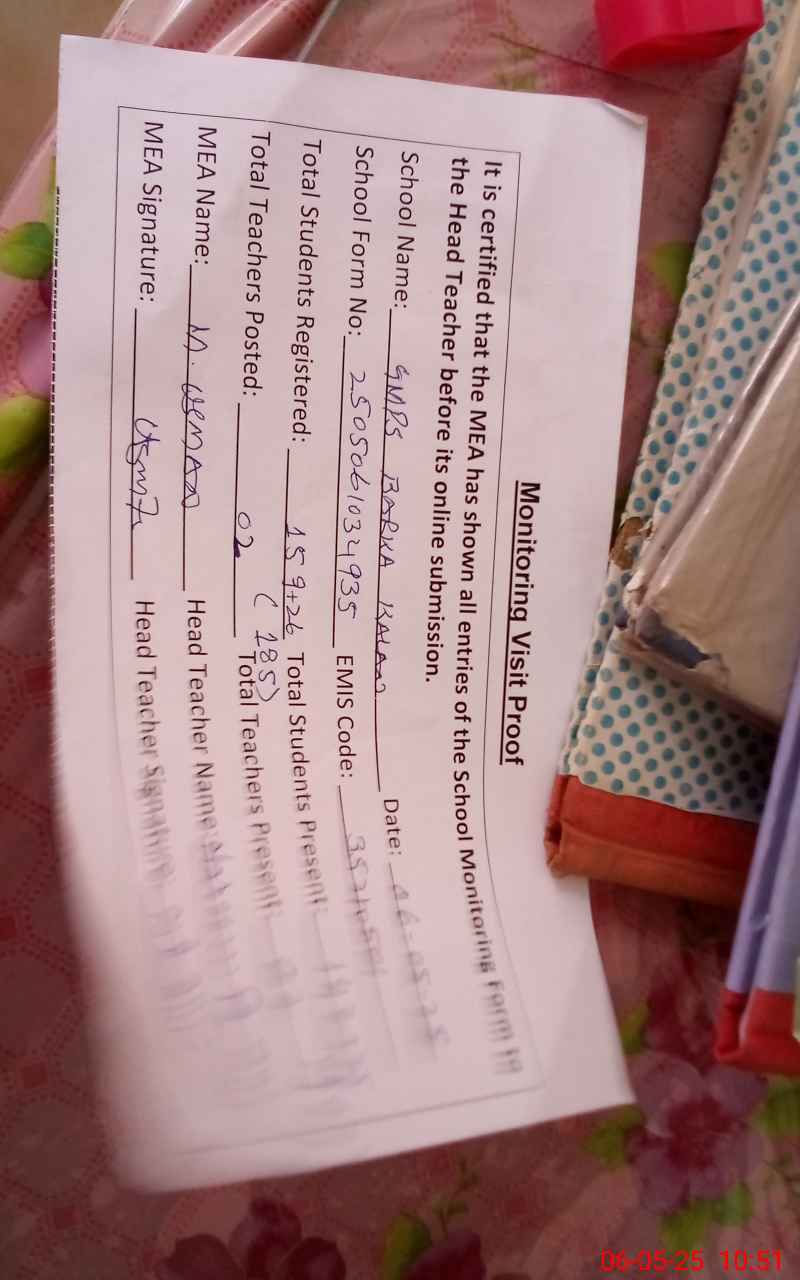 Monitoring Visit Proof
It is certified that the MEA has shown all entries of the School Monitoring Form to
the Head Teacher before its online submission.
School Name: GMPS BARKA KALAN Date: 06-05-25
School Form No: 2505061034935 EMIS Code:
Total Students Registered: 159+26 Total Students Present:
(185)
Total Teachers Posted: 02 Total Teachers Present:
MEA Name: M. USMAN Head Teacher Name:
MEA Signature: Head Teacher Signature:
06-05-25 10:51